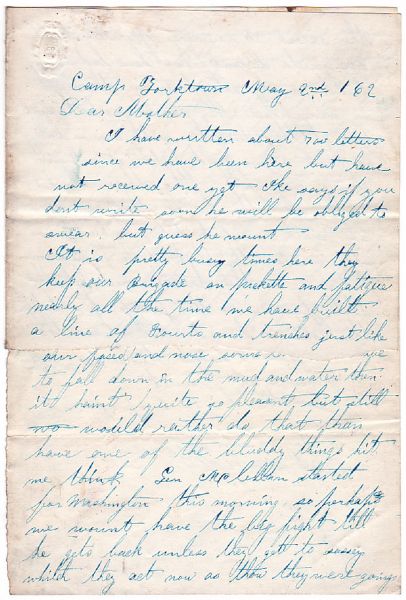 Camp Yorktown May 2nd /62
Dear Mother
I have written about 700 letters
since we have been here but have
not received one yet Ike says if you
dont write soon he will be obliged to
swear. but guess he wount
It is pretty busy times here they
keep our brigade on picketts and fatigue
nearly all the time we have built
a line of Fourts and trenches just like
our faces and nose, some
to fall down in the mud and water then.
its haint quite so pleasant, but still
would rather do that than
have one of the bluddy things hit
me think Gen McClellan started
for Washington this morning, so perhaps
we wount have the big fight till
he gets back unless they get to sassey
which they act now as thou they were going